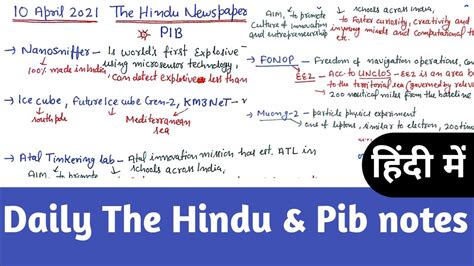 10 April 2021 The Hindu Newspaper
PIB
→ NanoSniffer - Is world's first Explosive
100% made in India, using microsensor technology,
can detect explosive less than
→ Ice cube, Future Ice cube Gen-2, KM3Net -
south pole Mediterranean
sea
→ Atal Tinkering lab - Atal innovation mission has est. ATL in
AIM, to promote schools across India,
AIM, to promote
culture of innovation
and entrepreneurship
schools across india,
to foster curiosity, creativity and
inspiring minds and computational
→ FONOP - Freedom of navigation operations,
EEZ - Acc to UNCLOS - EEZ is an area
to the territorial sea (governed by
200 nautical miles from the
→ Muong-2 - particle physics experiment
one of leptons, similar to electron, 200
हिंदी में
Daily The Hindu & Pib notes